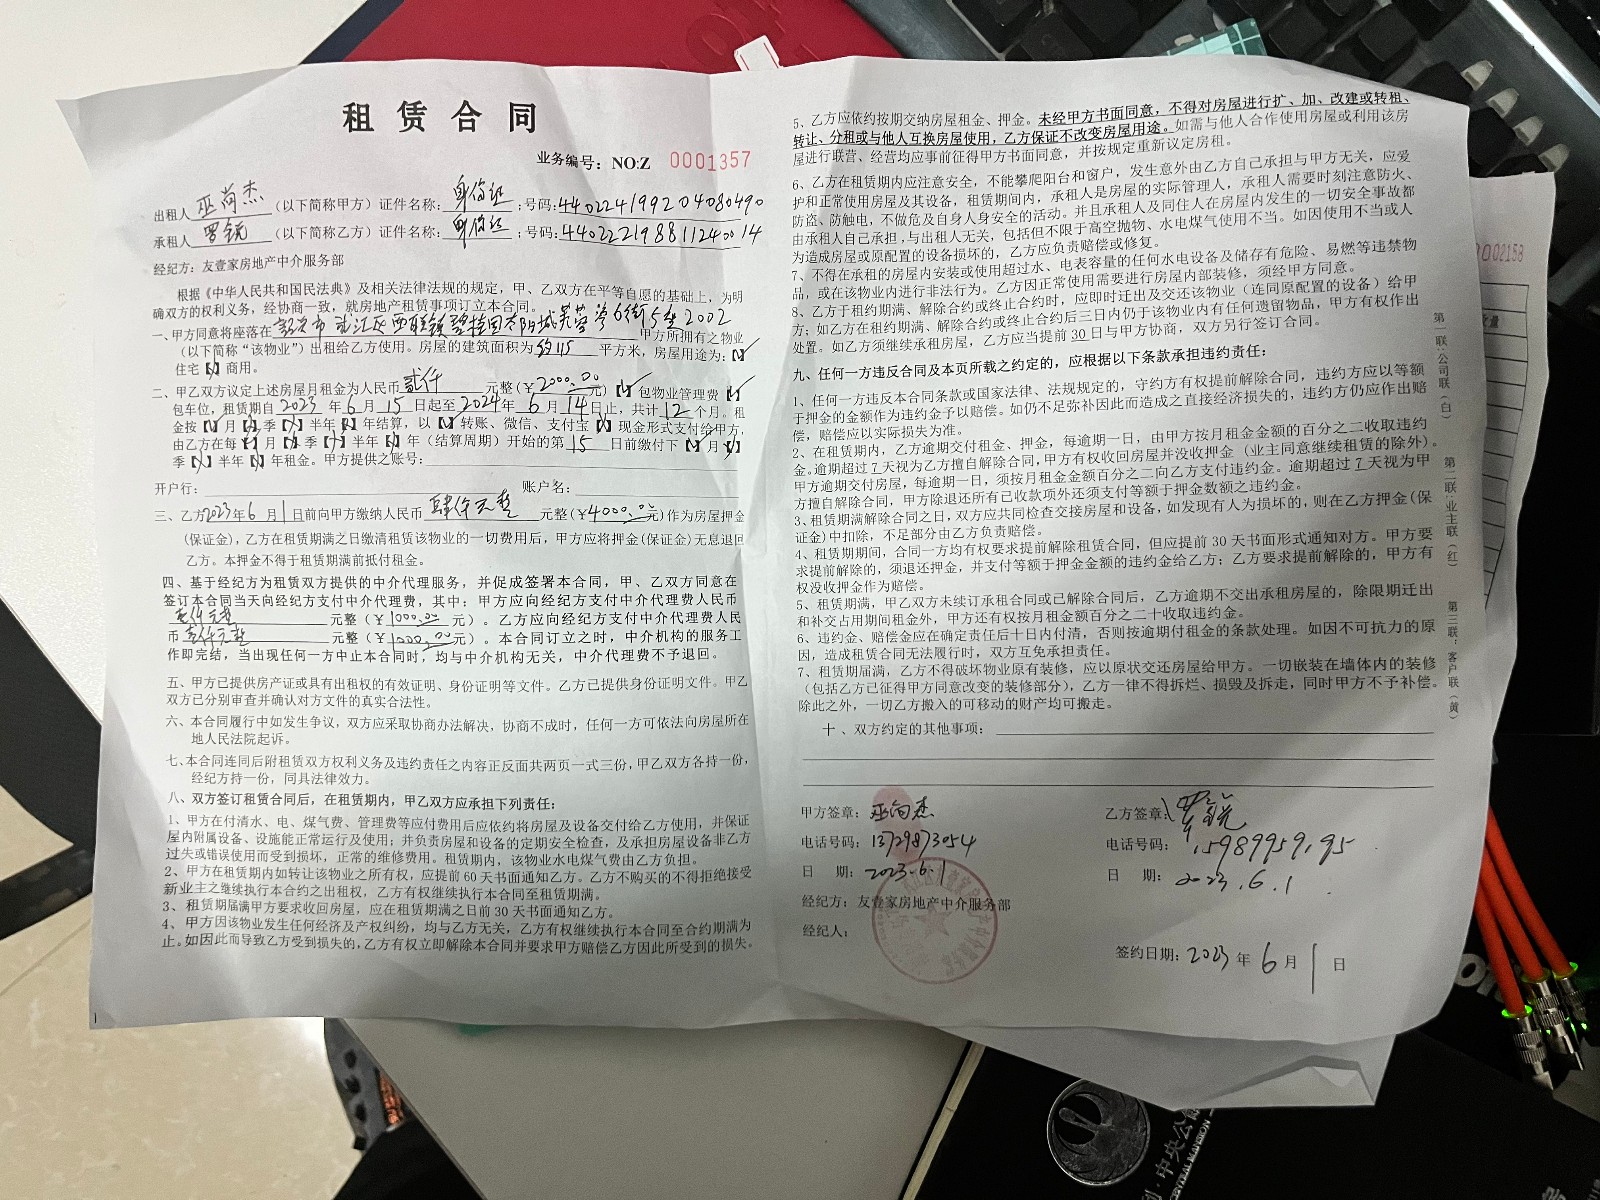 租赁合同
业务编号：NO:Z 0001357
出租人 巫尚杰 （以下简称甲方）证件名称：身份证；号码：440224199204080490
承租人 罗锐 （以下简称乙方）证件名称：身份证；号码：440222198811240014
经纪方：友壹家房地产中介服务部
根据《中华人民共和国民法典》及相关法律法规的规定，甲、乙双方在平等自愿的基础上，为明
确双方的权利义务，经协商一致，就房地产租赁事项订立本合同。
一、甲方同意将座落在 韶关市武江区西联镇碧桂园太阳城芙蓉湾6街5座2002 甲方所拥有之物业
（以下简称“该物业”）出租给乙方使用。房屋的建筑面积为 约115 平方米，房屋用途为：【✓】
住宅【】商用。
二、甲乙双方议定上述房屋月租金为人民币 贰仟 元整（￥2000.00元）【】包物业管理费【】
包车位，租赁期自 2023 年 6 月 15 日起至 2024 年 6 月 14 日止，共计 12 个月。租
金按【】月【】季【】半年【】年结算，以【】转账、微信、支付宝【】现金形式支付给甲方，
由乙方在每【】月【】季【】半年【】年（结算周期）开始的第 15 日前缴付下【】月【】
季【】半年【】年租金。甲方提供之账号：
开户行： 账户名：
三、乙方2023年6月1日前向甲方缴纳人民币 肆仟元整 元整（￥4000.00元）作为房屋押金
（保证金），乙方在租赁期满之日缴清租赁该物业的一切费用后，甲方应将押金（保证金）无息退回
乙方。本押金不得于租赁期满前抵付租金。
四、基于经纪方为租赁双方提供的中介代理服务，并促成签署本合同，甲、乙双方同意在
签订本合同当天向经纪方支付中介代理费，其中：甲方应向经纪方支付中介代理费人民币
壹仟元整 元整（￥1000.00元）。乙方应向经纪方支付中介代理费人民
币 壹仟元整 元整（￥1000.00元）。本合同订立之时，中介机构的服务工
作即完结，当出现任何一方中止本合同时，均与中介机构无关，中介代理费不予退回。
五、甲方已提供房产证或具有出租权的有效证明、身份证明等文件。乙方已提供身份证明文件。甲乙
双方已分别审查并确认对方文件的真实合法性。
六、本合同履行中如发生争议，双方应采取协商办法解决，协商不成时，任何一方可依法向房屋所在
地人民法院起诉。
七、本合同连同后附租赁双方权利义务及违约责任之内容正反面共两页一式三份，甲乙双方各持一份，
经纪方持一份，同具法律效力。
八、双方签订租赁合同后，在租赁期内，甲乙双方应承担下列责任：
1、甲方在付清水、电、煤气费、管理费等应付费用后应依约将房屋及设备交付给乙方使用，并保证
屋内附属设备、设施能正常运行及使用；并负责房屋和设备的定期安全检查，及承担房屋设备非乙方
过失或错误使用而受到损坏，正常的维修费用。租赁期内，该物业水电煤气费由乙方负担。
2、甲方在租赁期内如转让该物业之所有权，应提前60天书面通知乙方。乙方不购买的不得拒绝接受
新业主之继续执行本合约之出租权，乙方有权继续执行本合同至租赁期满。
3、租赁期届满甲方要求收回房屋，应在租赁期满之日前30天书面通知乙方。
4、甲方因该物业发生任何经济及产权纠纷，均与乙方无关，乙方有权继续执行本合同至合约期满为
止。如因此而导致乙方受到损失的，乙方有权立即解除本合同并要求甲方赔偿乙方因此所受到的损失。
5、乙方应依约按期交纳房屋租金、押金。未经甲方书面同意，不得对房屋进行扩、加、改建或转租、
转让、分租或与他人互换房屋使用，乙方保证不改变房屋用途。如需与他人合作使用房屋或利用该房
屋进行联营、经营均应事前征得甲方书面同意，并按规定重新议定房租。
6、乙方在租赁期内应注意安全，不能攀爬阳台和窗户，发生意外由乙方自己承担与甲方无关，应爱
护和正常使用房屋及其设备，租赁期间内，承租人是房屋的实际管理人，承租人需要时刻注意防火、
防盗、防触电，不做危及自身人身安全的活动。并且承租人及同住人在房屋内发生的一切安全事故都
由承租人自己承担，与出租人无关，包括但不限于高空抛物、水电煤气使用不当。如因使用不当或人
为造成房屋或原配置的设备损坏的，乙方应负责赔偿或修复。
7、不得在承租的房屋内安装或使用超过水、电表容量的任何水电设备及储存有危险、易燃等违禁物
品，或在该物业内进行非法行为。乙方因正常使用需要进行房屋内部装修，须经甲方同意。
8、乙方于租约期满、解除合约或终止合约时，应即时迁出及交还该物业（连同原配置的设备）给甲
方；如乙方在租约期满、解除合约或终止合约后三日内仍于该物业内有任何遗留物品，甲方有权作出
处置。如乙方须继续承租房屋，乙方应当提前30日与甲方协商，双方另行签订合同。
九、任何一方违反本合同及本页所载之约定的，应根据以下条款承担违约责任：
1、任何一方违反本合同条款或国家法律、法规规定的，守约方有权提前解除合同，违约方应以等额
于押金的金额作为违约金予以赔偿。如仍不足弥补因此而造成之直接经济损失的，违约方仍应作出赔
偿，赔偿应以实际损失为准。
2、在租赁期内，乙方逾期交付租金、押金，每逾期一日，由甲方按月租金金额的百分之二收取违约
金。逾期超过7天视为乙方擅自解除合同，甲方有权收回房屋并没收押金（业主同意继续租赁的除外）。
甲方逾期交付房屋，每逾期一日，须按月租金金额百分之二向乙方支付违约金。逾期超过7天视为甲
方擅自解除合同，甲方除退还所有已收款项外还须支付等额于押金数额之违约金。
3、租赁期满解除合同之日，双方应共同检查交接房屋和设备，如发现有人为损坏的，则在乙方押金（保
证金）中扣除，不足部分由乙方负责赔偿。
4、租赁期期间，合同一方均有权要求提前解除租赁合同，但应提前30天书面形式通知对方。甲方要
求提前解除的，须退还押金，并支付等额于押金金额的违约金给乙方；乙方要求提前解除的，甲方有
权没收押金作为赔偿。
5、租赁期满，甲乙双方未续订承租合同或已解除合同后，乙方逾期不交出承租房屋的，除限期迁出
和补交占用期间租金外，甲方还有权按月租金额百分之二十收取违约金。
6、违约金、赔偿金应在确定责任后十日内付清，否则按逾期付租金的条款处理。如因不可抗力的原
因，造成租赁合同无法履行时，双方互免承担责任。
7、租赁期届满，乙方不得破坏物业原有装修，应以原状交还房屋给甲方。一切嵌装在墙体内的装修
（包括乙方已征得甲方同意改变的装修部分），乙方一律不得拆烂、损毁及拆走，同时甲方不予补偿。
除此之外，一切乙方搬入的可移动的财产均可搬走。
十、双方约定的其他事项：
甲方签章：巫尚杰 乙方签章：罗锐
电话号码：13729873054 电话号码：15989959195
日 期：2023.6.1 日 期：2023.6.1
经纪方：友壹家房地产中介服务部
经纪人：
签约日期：2023年6月1日
第一联：公司联（白）
第二联：业主联（红）
第三联：客户联（黄）
0002158
中央公